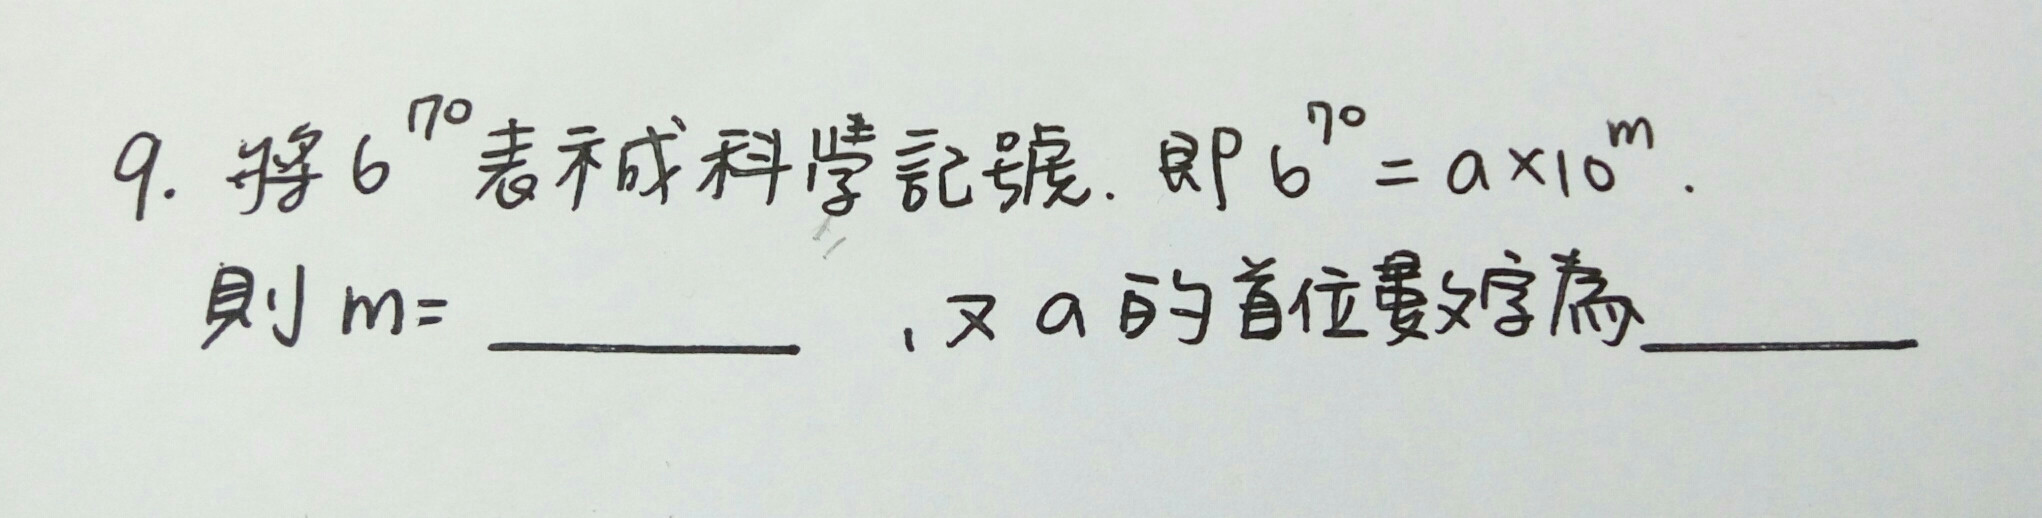 9. 將6^70表示成科學記號. 即6^70=a×10^m.
則m=________ , 又a的首位數字為________